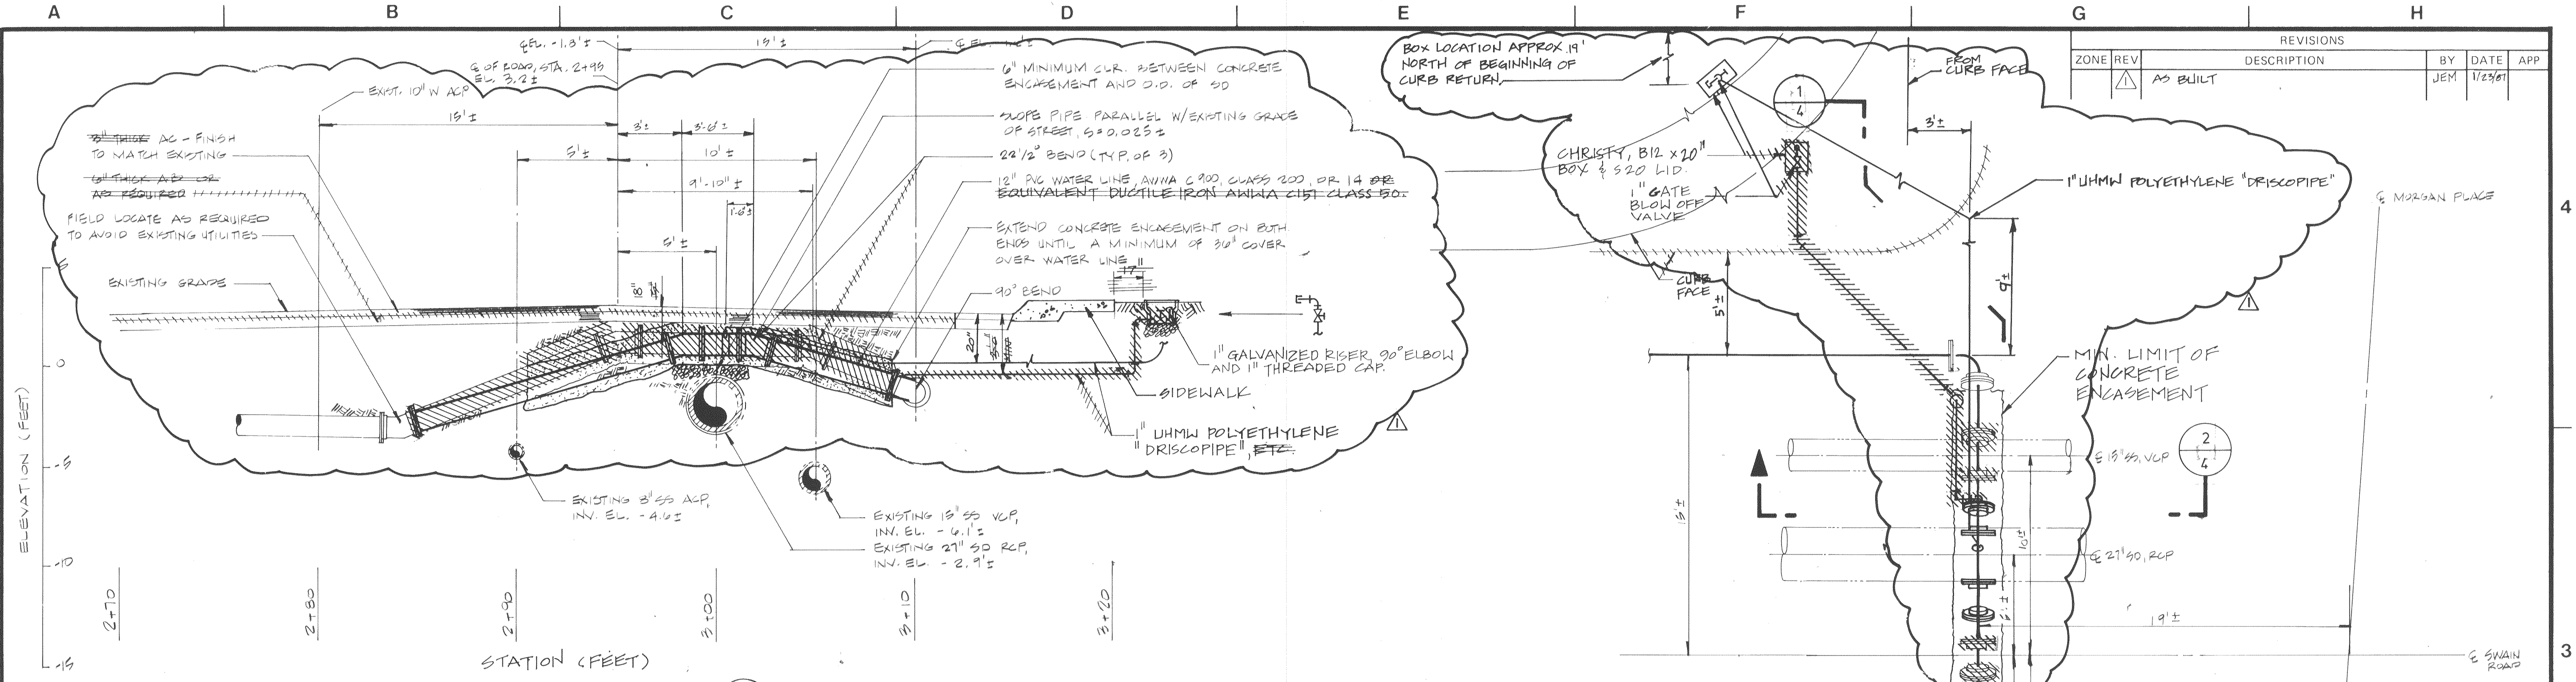 A B C D E F G H
REVISIONS
ZONE REV DESCRIPTION BY DATE APP
1 AS BUILT JEM 1/23/87
℄ EL. -1.3'±
15'±
℄ EL.
℄ OF ROAD, STA. 2+95
EL. 3.2±
EXIST. 10" W ACP
15'±
3'±
3'-6"±
5'±
10'±
9'-10"±
1'-6"±
5'±
3" THICK AC - FINISH
TO MATCH EXISTING
6" THICK AB OR
AS REQUIRED
FIELD LOCATE AS REQUIRED
TO AVOID EXISTING UTILITIES
EXISTING GRADE
6" MINIMUM CLR. BETWEEN CONCRETE
ENCASEMENT AND O.D. OF SD
SLOPE PIPE PARALLEL W/EXISTING GRADE
OF STREET, S=0.025±
22 1/2° BEND (TYP. OF 3)
12" PVC WATER LINE, AWWA C900, CLASS 200, DR 14 OR
EQUIVALENT DUCTILE IRON AWWA C151 CLASS 50.
EXTEND CONCRETE ENCASEMENT ON BOTH
ENDS UNTIL A MINIMUM OF 36" COVER
OVER WATER LINE
17"
90° BEND
18"
20"
1" GALVANIZED RISER, 90° ELBOW
AND 1" THREADED CAP.
SIDEWALK
1" UHMW POLYETHYLENE
"DRISCOPIPE", ETC.
1
EXISTING 8" SS ACP,
INV. EL. -4.6±
EXISTING 15" SS VCP,
INV. EL. -6.1'±
EXISTING 27" SD RCP,
INV. EL. -2.9'±
ELEVATION (FEET)
5
0
-5
-10
-15
2+70
2+80
2+90
3+00
3+10
3+20
STATION (FEET)
BOX LOCATION APPROX. 19'
NORTH OF BEGINNING OF
CURB RETURN.
1
4
FROM
CURB FACE
3'±
CHRISTY, B12 x 20"
BOX & S20 LID.
1" GATE
BLOW OFF
VALVE
1" UHMW POLYETHYLENE "DRISCOPIPE"
℄ MORGAN PLACE
4
CURB
FACE
5'±
9'±
1
MIN. LIMIT OF
CONCRETE
ENCASEMENT
℄ 15" SS, VCP
2
4
℄ 27" SD, RCP
15'±
10'±
19'±
℄ SWAIN
ROAD
3